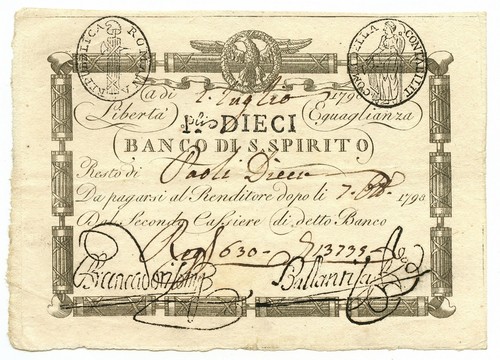 REPUBBLICA ROMANA
COM. DELLA CONTABILITA
A dì 1. Luglio 1798
Libertà Eguaglianza
DIECI
BANCO DI S. SPIRITO
Resto di Paoli Dieci
Da pagarsi al Renditore dopo li 7. 1798
Dal Secondo Cassiere di detto Banco
Reg. 630 13739